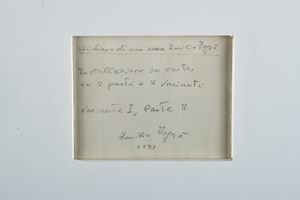 Dichiaro di non essere Emilio Isgrò
Installazione su carta
in 7 parti e 2 varianti
Variante I, parte
Emilio Isgrò
1971